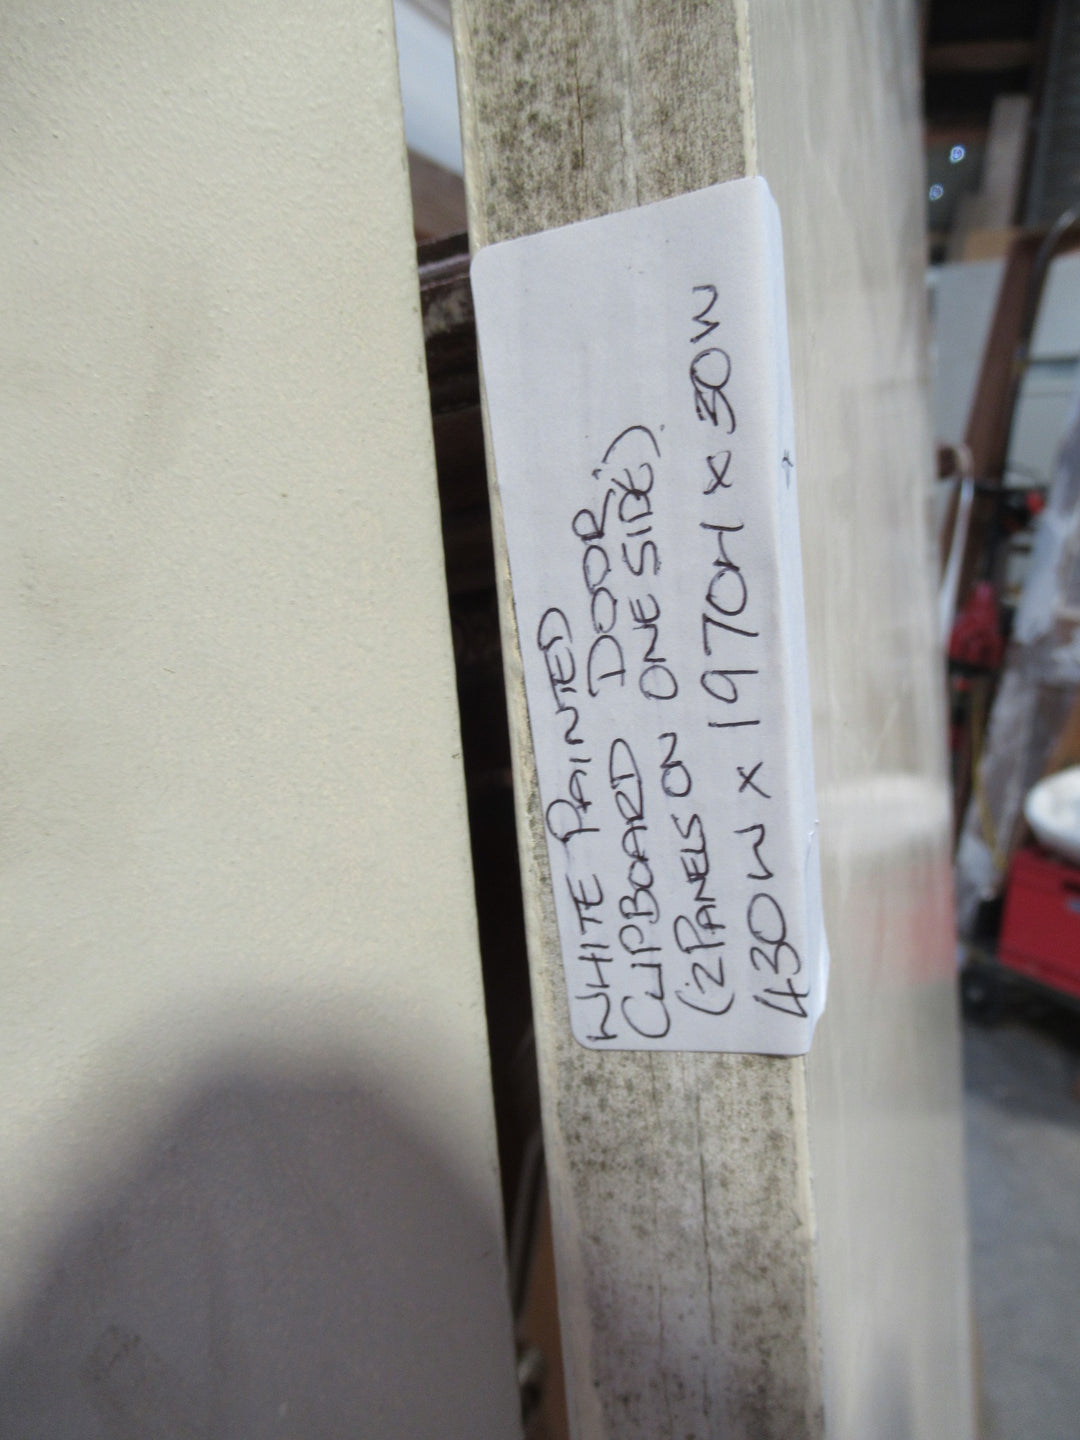 WHITE PAINTED
CLIPBOARD DOOR
(2 PANELS ON ONE SIDE)
430W x 1970H x 30W